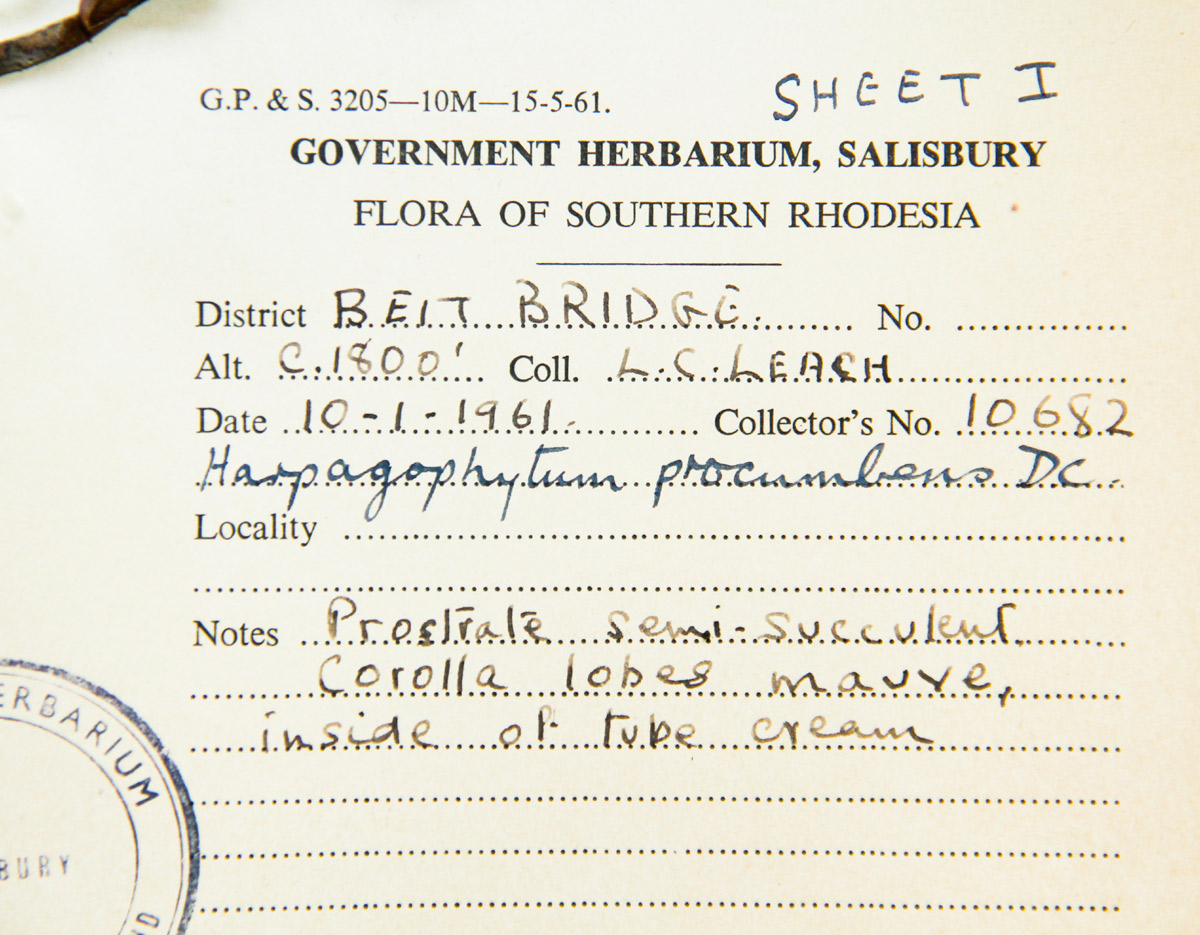 SHEET I
G.P. & S. 3205—10M—15-5-61.
GOVERNMENT HERBARIUM, SALISBURY
FLORA OF SOUTHERN RHODESIA
District BEIT BRIDGE. No.
Alt. C.1800' Coll. L.C.LEACH
Date 10-1-1961. Collector's No. 10682
Harpagophytum procumbens DC.
Locality
Notes Prostrate semi-succulent.
Corolla lobes mauve,
inside of tube cream
ERBARIUM
BURY